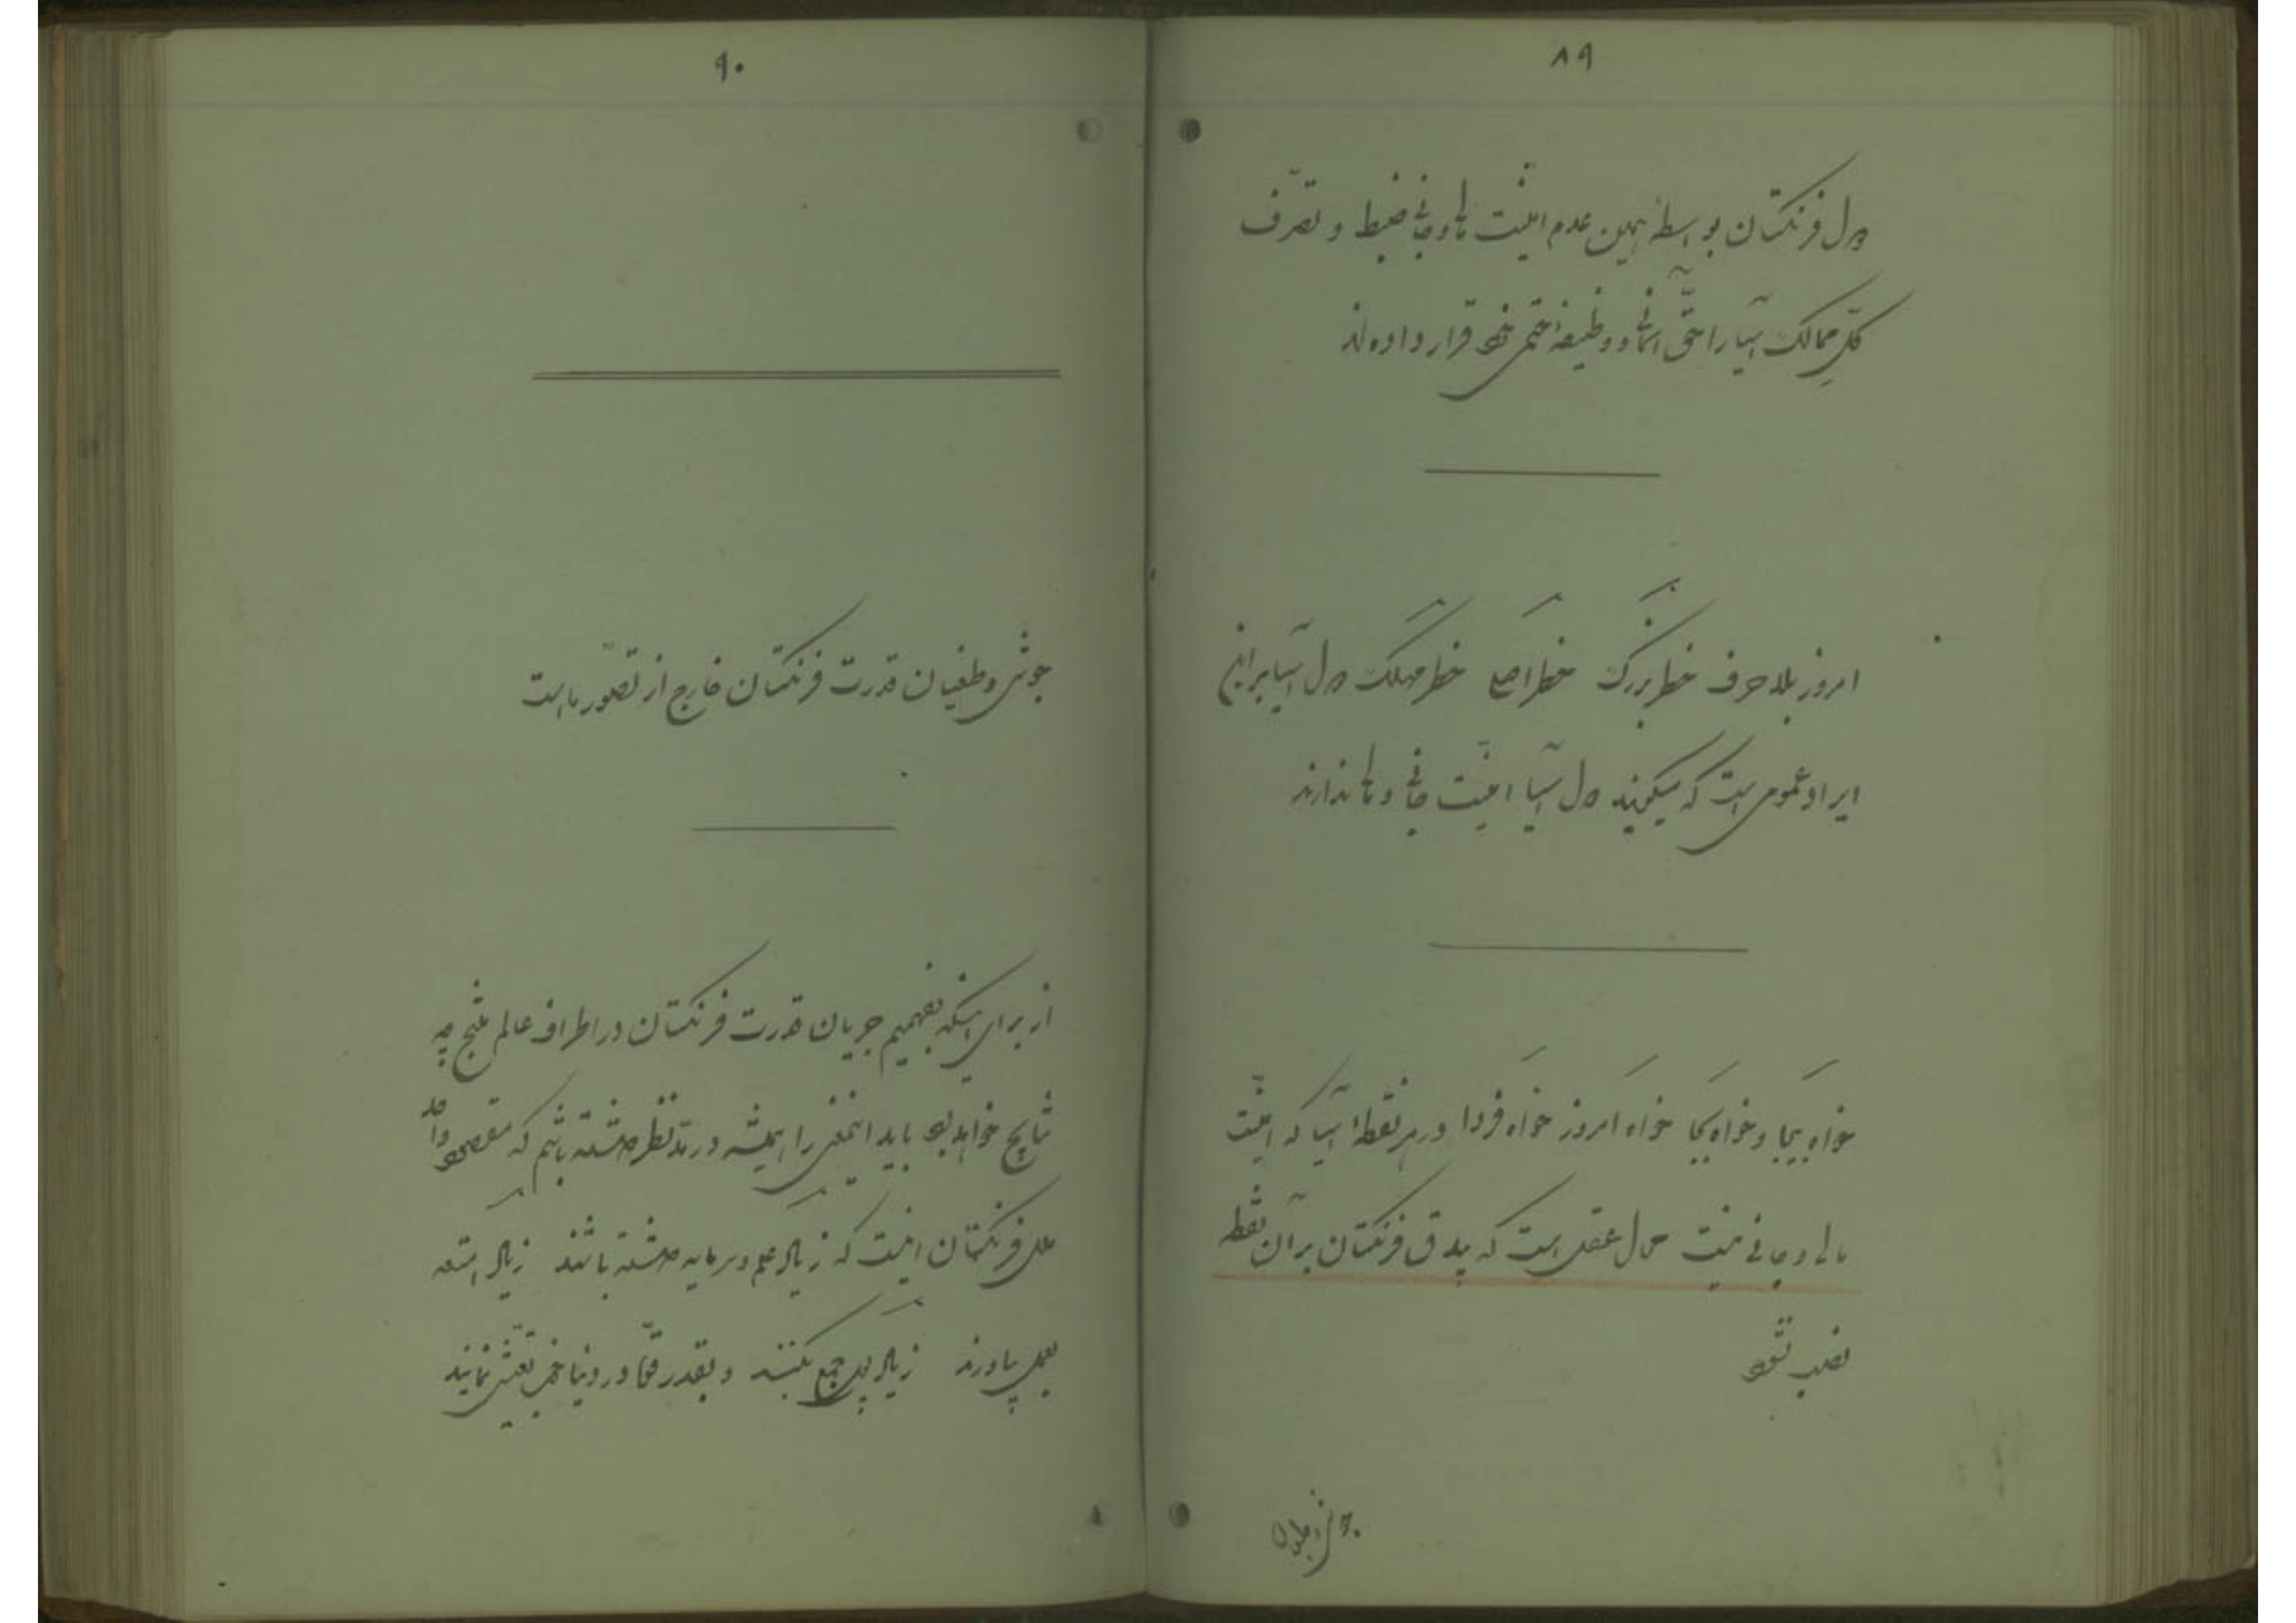 ۸۹
دول فرنگستان بواسطهٔ همین عدم امنیّت مالی و جانی ضبط و تصرّف
کلّ ممالک آسیا را حقّ آسمانی و وظیفهٔ حتمی خود قرار داده‌اند
امروز بلاحرف خطر بزرگ خطر اصلی خطر مهلک دول آسیا بر این
ایراد عمومی است که میگویند دول آسیا امنیّت جانی و مالی ندارند
خواه بیجا و خواه بجا خواه امروز خواه فردا در هر نقطهٔ آسیا که امنیّت
مالی و جانی نیست محال عقلی است که بیدق فرنگستان بر آن نقطه
نصب نشود
جوش و طغیان
۹۰
جوش و طغیان قدرت فرنگستان خارج از تصوّر ما است
از برای اینکه بفهمیم جریان قدرت فرنگستان در اطراف عالم منتج چه
نتایج خواهد بود باید اینمعنی را همیشه در مدّ نظر داشته باشیم که مقصود واحد
ملل فرنگستان اینست که زیاد علم و سرمایه داشته باشند زیاد امتعه
بعمل بیاورند زیاد پول جمع بکنند و بقدر قوّه در دنیا خوب تعیّش نمایند